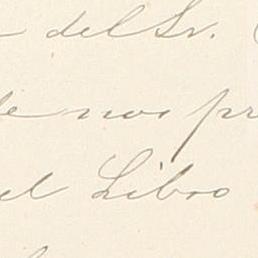 del Sr.
de nos pr
el Libro